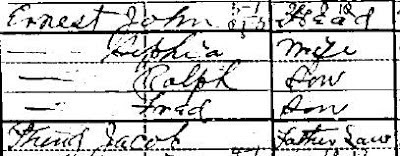 Ernest John Head
— Sophia Wife
— Ralph Son
— Fred Son
Jacob Father Law